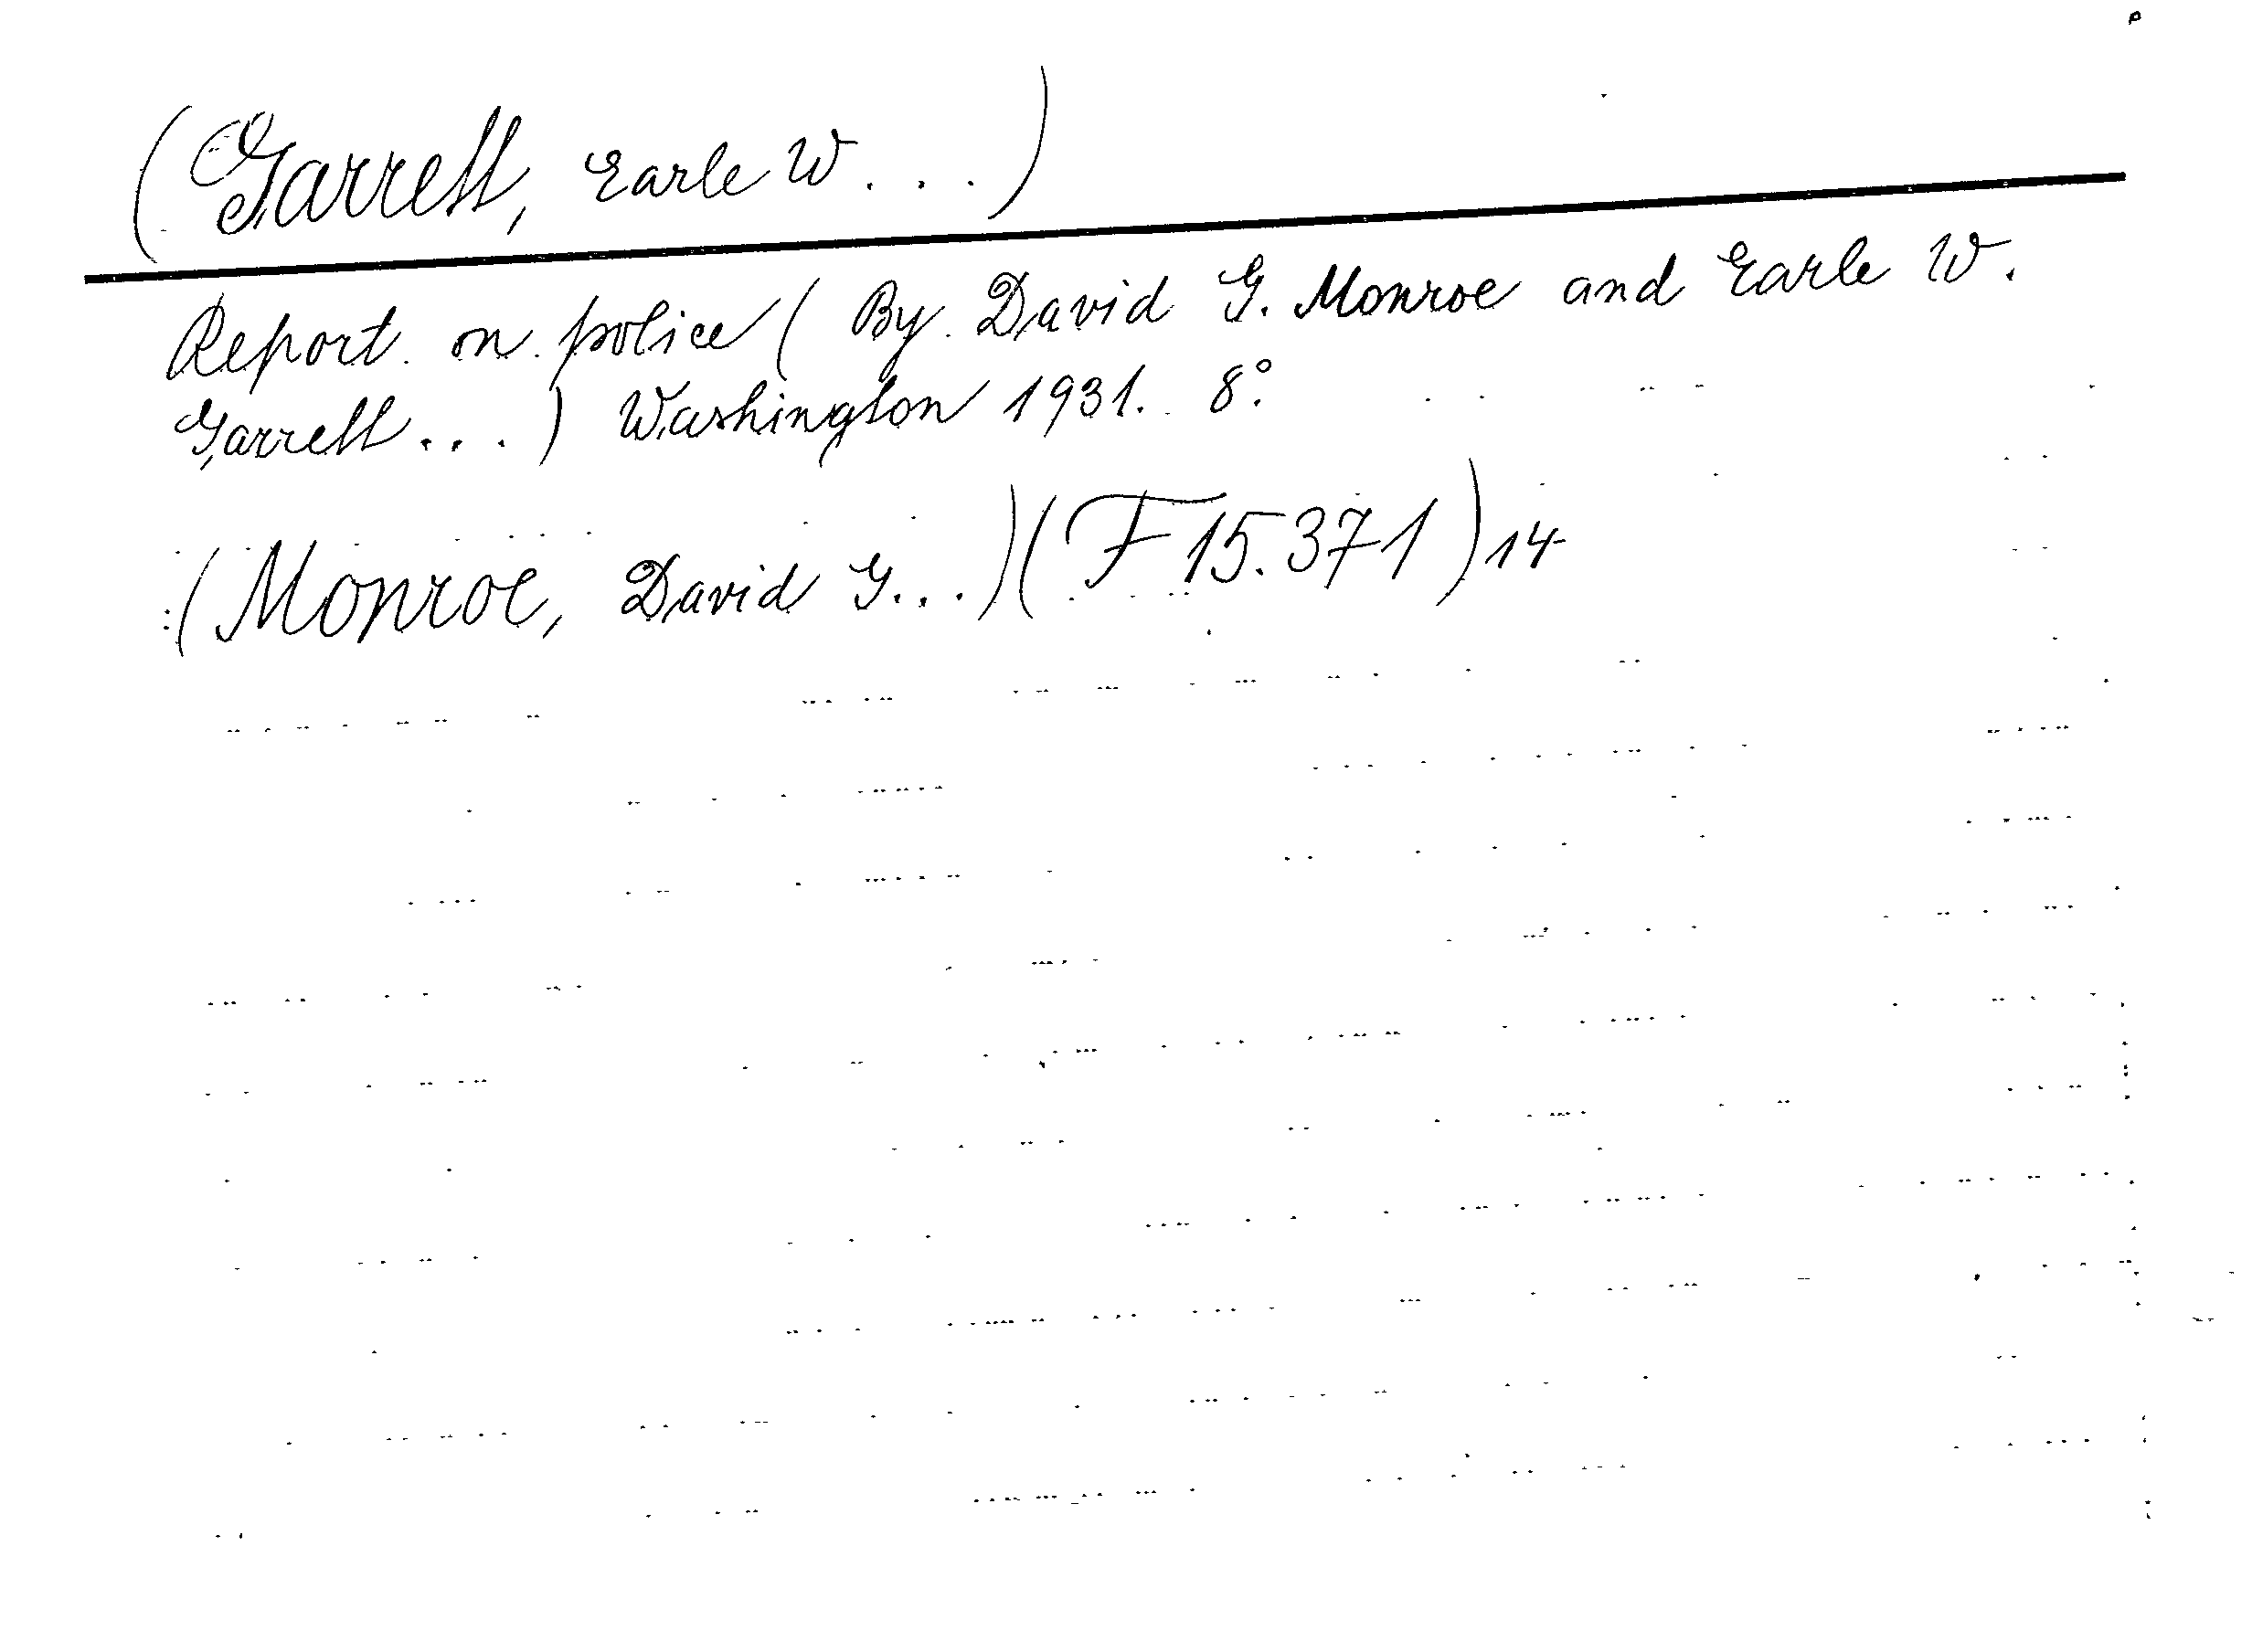 (Garrett, Earle W...)
Report on police (By David G. Monroe and Earle W.
Garrett...) Washington 1931. 8°.
(Monroe, David G...) (F 15.371) 14